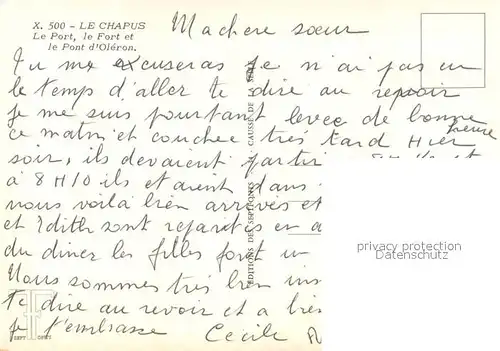 X. 500 - LE CHAPUS
Le Port, le Fort et
le Pont d'Oléron.
Ma chere sœur
Tu me excuseras je n'ai pas eu
le temps d'aller te dire au revoir
je me suis pourtant levee de bonne
heure
ce matin et couchee très tard Hier
soir, ils devaient partir
à 8H10 ils etaient dans
nous voilà bien arrivés et
et Edith sont repartis en a
du diner les filles font un
Nous sommes très bien ins
te dire au revoir et a bien
je t'embrasse Cecile
EDITIONS DES SEPT FONTS
LA CAUSSE DE LA
privacy protection
Datenschutz
SEPT FONTS